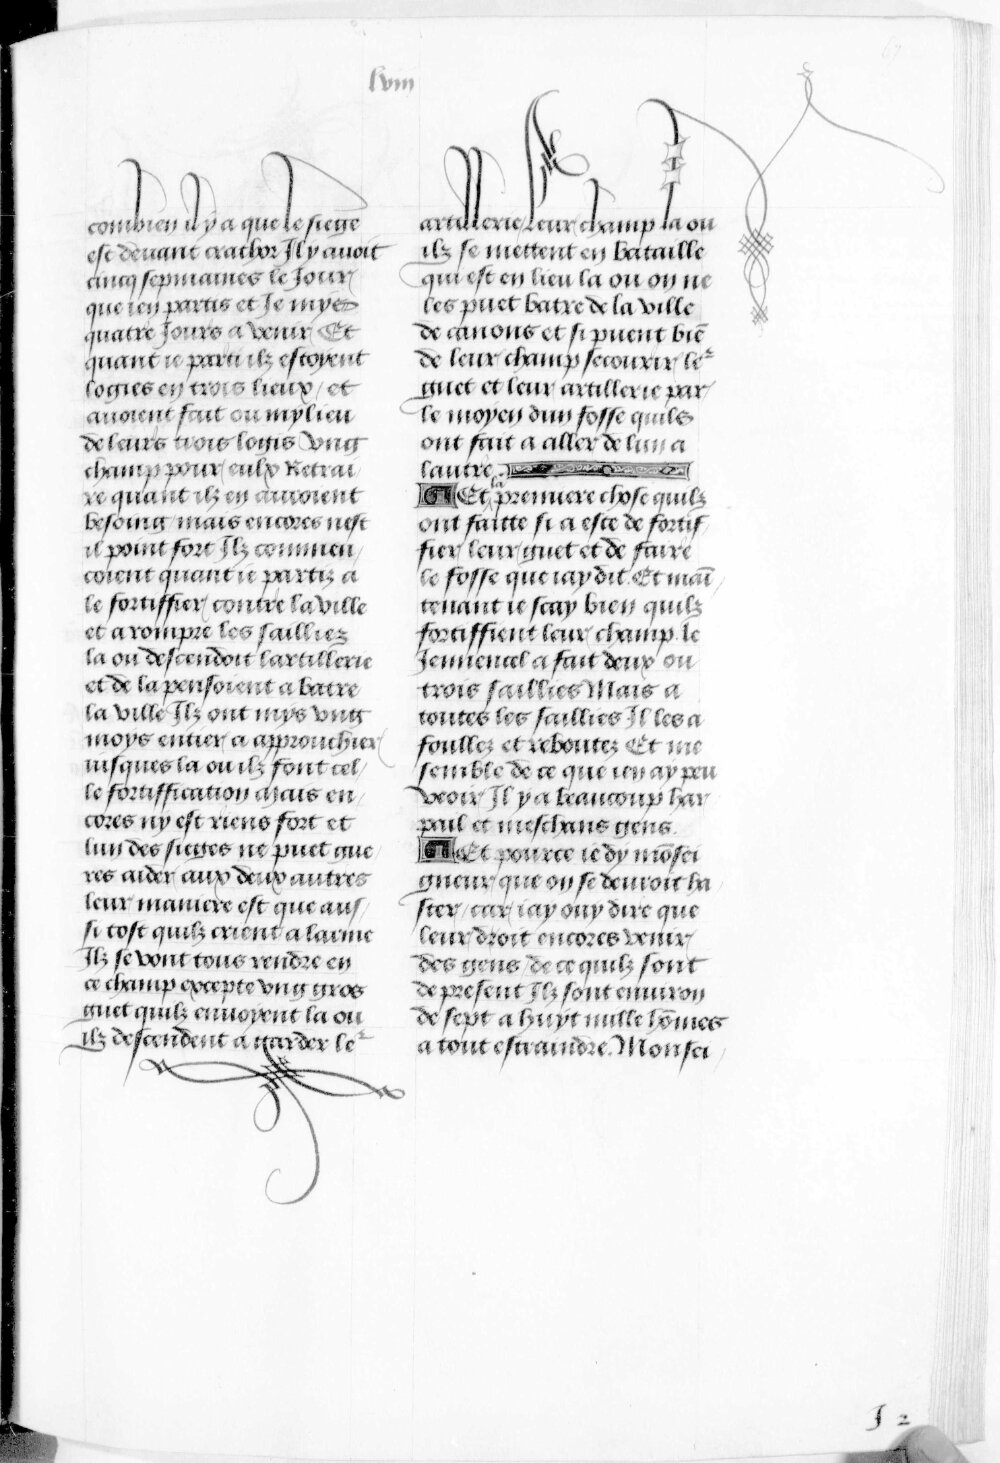 lviii
combien il y a que le siege
est deuant crathor Il y auoit
cinq sepmaines le Jour
que ien partis et Je mys
quatre Jours a venir Et
quant ie parti ilz estoyent
logies en trois lieux / et
auoient fait ou mylieu
de leurs trois logis vng
champ pour eulx Retrai
re quant ilz en auroient
besoing / mais encores nest
il point fort Ilz commen /
coient quant ie partiz a
le fortiffier contre la ville
et a rompre les sailliez
la ou descendoit lartillerie
et de la pensoient a batre
la ville Ilz ont mys vng
moys entier a approuchier
iusques la ou ilz font cel /
le fortiffication Mais en /
cores ny est riens fort et
lun des sieges ne puet gue /
res aider aux deux autres
leur maniere est que aus /
si tost quilz crient a larme
Ilz se vont tous rendre en
ce champ excepte vng gros
guet quilz enuoyent la ou
ilz descendent a garder leʳ
artillerie / leur champ la ou
ilz se mettent en bataille
qui est en lieu la ou on ne
les puet batre de la ville
de canons et si puent biẽ
de leur champ secourir leʳ
guet et leur artillerie par /
le moyen dun fosse quilz
ont fait a aller de lun a
lautre
Et la premiere chose quilz
ont faitte si a este de fortif /
fier leur guet et de faire
le fosse que iay dit. Et mai͂
tenant ie scay bien quilz
fortiffient leur champ. le
Jennencel a fait deux ou
trois saillies Mais a
toutes les saillies Il les a
foullez et reboutez Et me
semble de ce que ien ay peu
veoir Il y a beaucoup har
pail et meschans gens.
Et pource ie dy mõsei
gneur que on se deuroit ha /
ster / car iay ouy dire que
leur droit encores venir
des gens / de ce quilz sont
de present Ilz sont enuiron
de sept a huyt mille hõmes
a tout estraindre. Monsei /
J 2